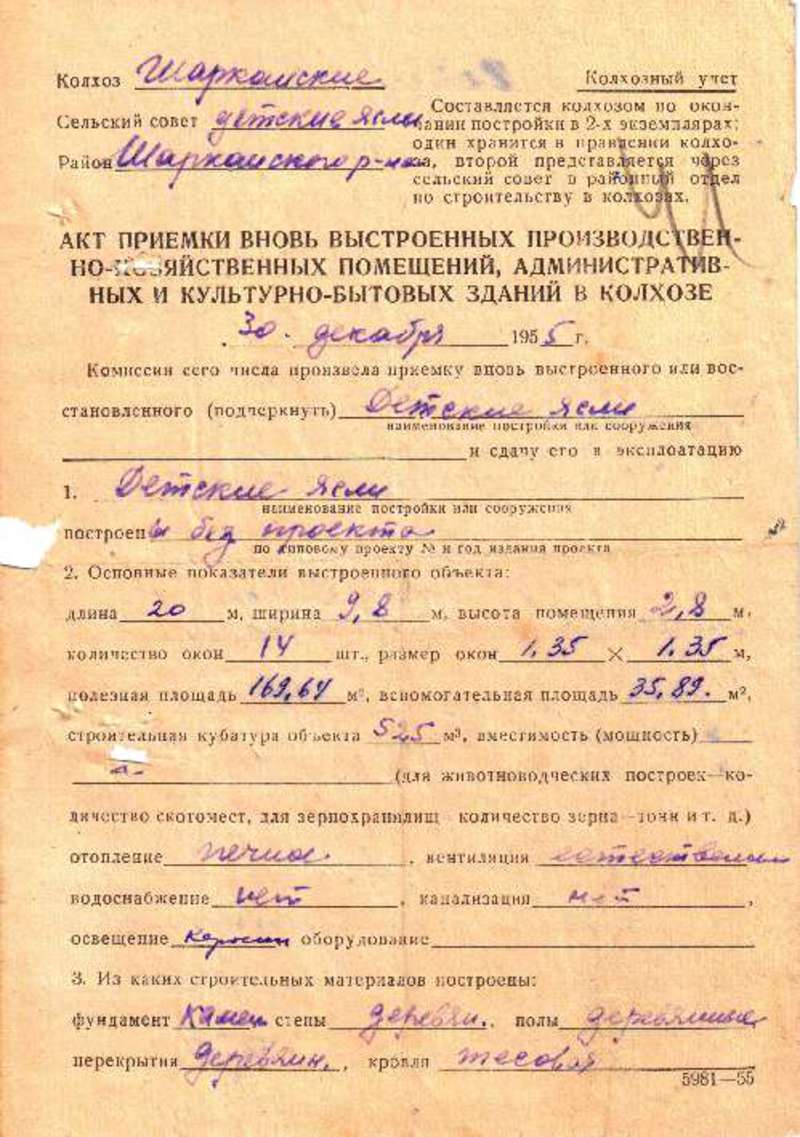 Колхоз Шарканские
Колхозный учет
Сельский совет детские ясли
Район Шарканского р-на
Составляется колхозом по окон-
чании постройки в 2-х экземплярах:
один хранится в правлении колхо-
за, второй представляется через
сельский совет в районный отдел
по строительству в колхозах.
АКТ ПРИЕМКИ ВНОВЬ ВЫСТРОЕННЫХ ПРОИЗВОДСТВЕН-
НО-ХОЗЯЙСТВЕННЫХ ПОМЕЩЕНИЙ, АДМИНИСТРАТИВ-
НЫХ И КУЛЬТУРНО-БЫТОВЫХ ЗДАНИЙ В КОЛХОЗЕ
30. декабря 1955 г.
Комиссия сего числа произвела приемку вновь выстроенного или вос-
становленного (подчеркнуть) Детские ясли
наименование постройки или сооружения
и сдачу его в эксплоатацию
1. Детские ясли
наименование постройки или сооружения
построены без проекта
по типовому проекту № и год издания проекта
2. Основные показатели выстроенного объекта:
длина 20 м, ширина 9,8 м, высота помещения 2,8 м.
количество окон 14 шт., размер окон 1.35 × 1.35 м,
полезная площадь 169,64 м², вспомогательная площадь 35,89. м²,
строительная кубатура объекта 525 м³, вместимость (мощность)
(для животноводческих построек—ко-
личество скотомест, для зернохранилищ количество зерна—тонн и т. д.)
отопление печное, вентиляция естественная
водоснабжение нет, канализация нет,
освещение керосин оборудование
3. Из каких строительных материалов построены:
фундамент камен стены деревян., полы деревянные
перекрытия деревян., кровля тесовая
5981—55